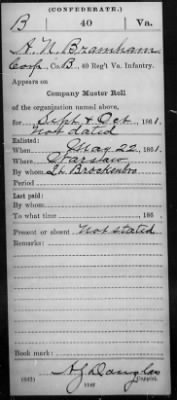 (CONFEDERATE.)
B 40 Va.
A. N. Bramham
Corp, Co. B, 40 Reg't Va. Infantry.
Appears on
Company Muster Roll
of the organization named above,
for Sept & Oct, 1861.
not dated
Enlisted:
When May 22, 1861.
Where Warsaw
By whom Lt. Brockenbro
Period
Last paid:
By whom
To what time , 186 .
Present or absent Not stated
Remarks:
Book mark:
(642) Copyist.